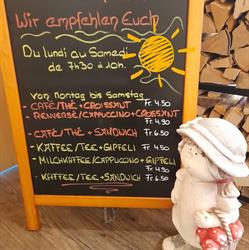 Wir empfehlen Euch
Du lundi au Samedi
de 7h30 à 10h.
Von Montag bis Samstag
- CAFÉ/THÉ + CROISSANT Fr. 4.50
- RENVERSÉ/CAPPUCCINO + CROISSANT
Fr. 4.90
- CAFÉ/THÉ + SANDWICH Fr. 6.50
- KAFFEE/TEE + GIPFELI Fr. 4.50
- MILCHKAFFEE/CAPPUCCINO + GIPFELI
Fr. 4.90
- KAFFEE/TEE + SANDWICH Fr. 6.50